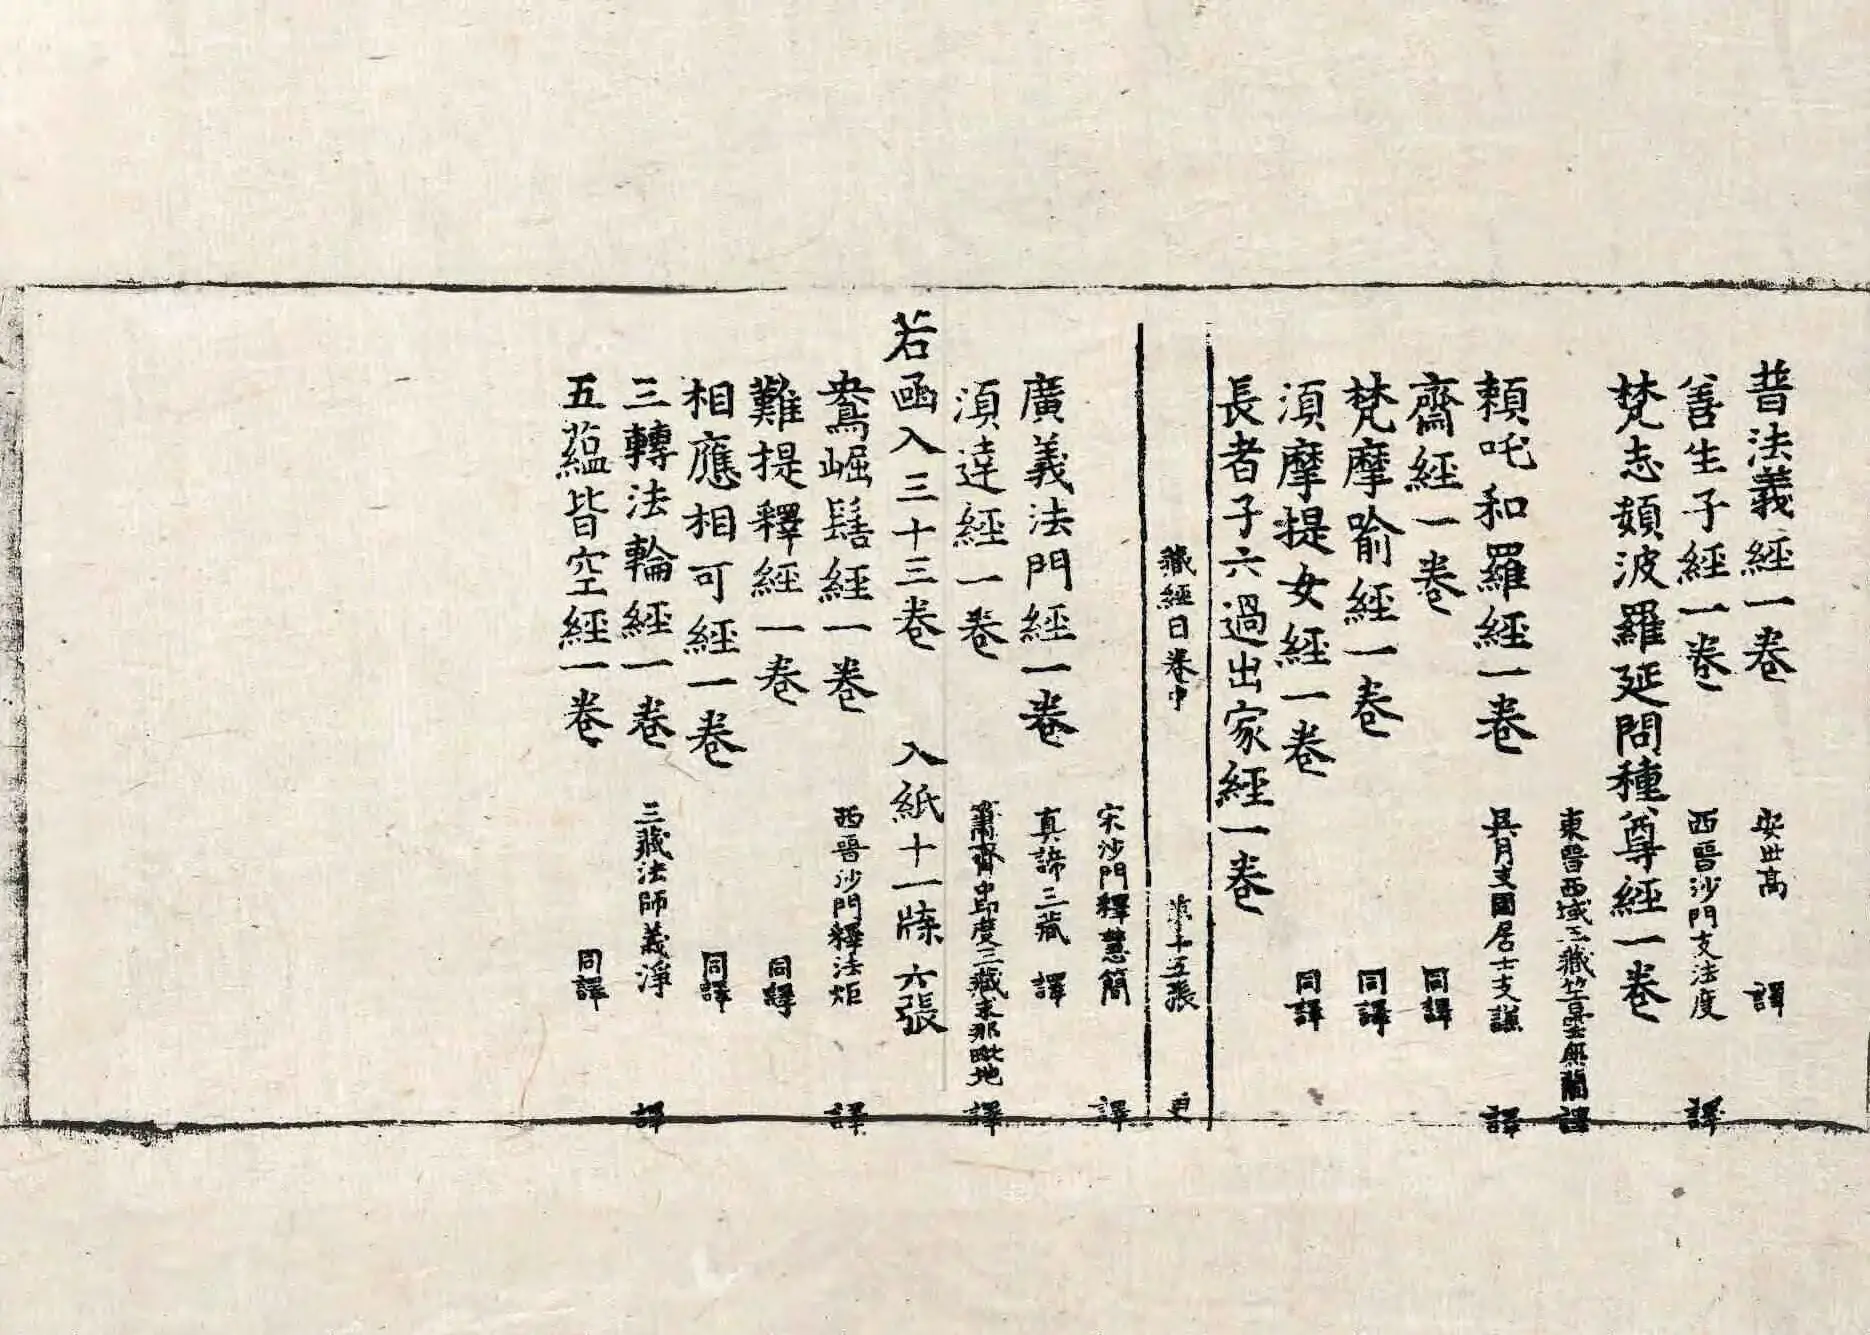 普法義經一卷 安世高 譯
善生子經一卷 西晉沙門支法度 譯
梵志頞波羅延問種尊經一卷
東晉西域三藏竺曇無蘭譯
頼吒和羅經一卷 吳月支國居士支謙 譯
齋經一卷 同譯
梵摩喻經一卷 同譯
須摩提女經一卷 同譯
長者子六過出家經一卷
藏經目卷中 第十五張
宋沙門釋慧簡 譯
廣義法門經一卷 真諦三藏 譯
須達經一卷 蕭齊中印度三藏求那毗地 譯
若函入三十三卷 入紙十一牒六張
鴦崛髻經一卷 西晉沙門釋法炬 譯
難提釋經一卷 同譯
相應相可經一卷 同譯
三轉法輪經一卷 三藏法師義淨 譯
五蘊皆空經一卷 同譯